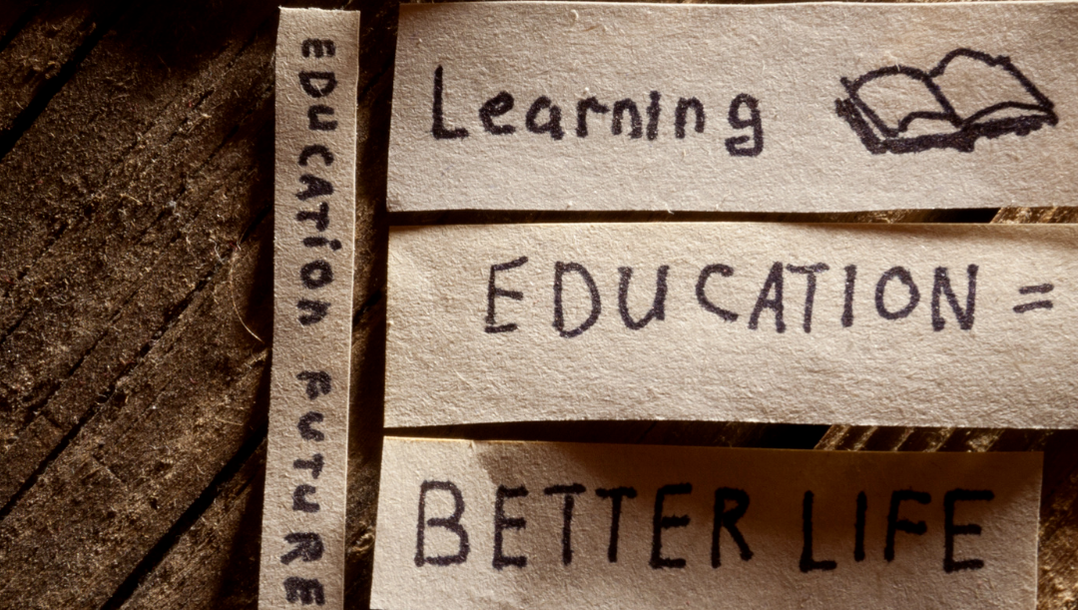 EDUCATiON FUTURE
Learning
EDUCATION =
BETTER LIFE